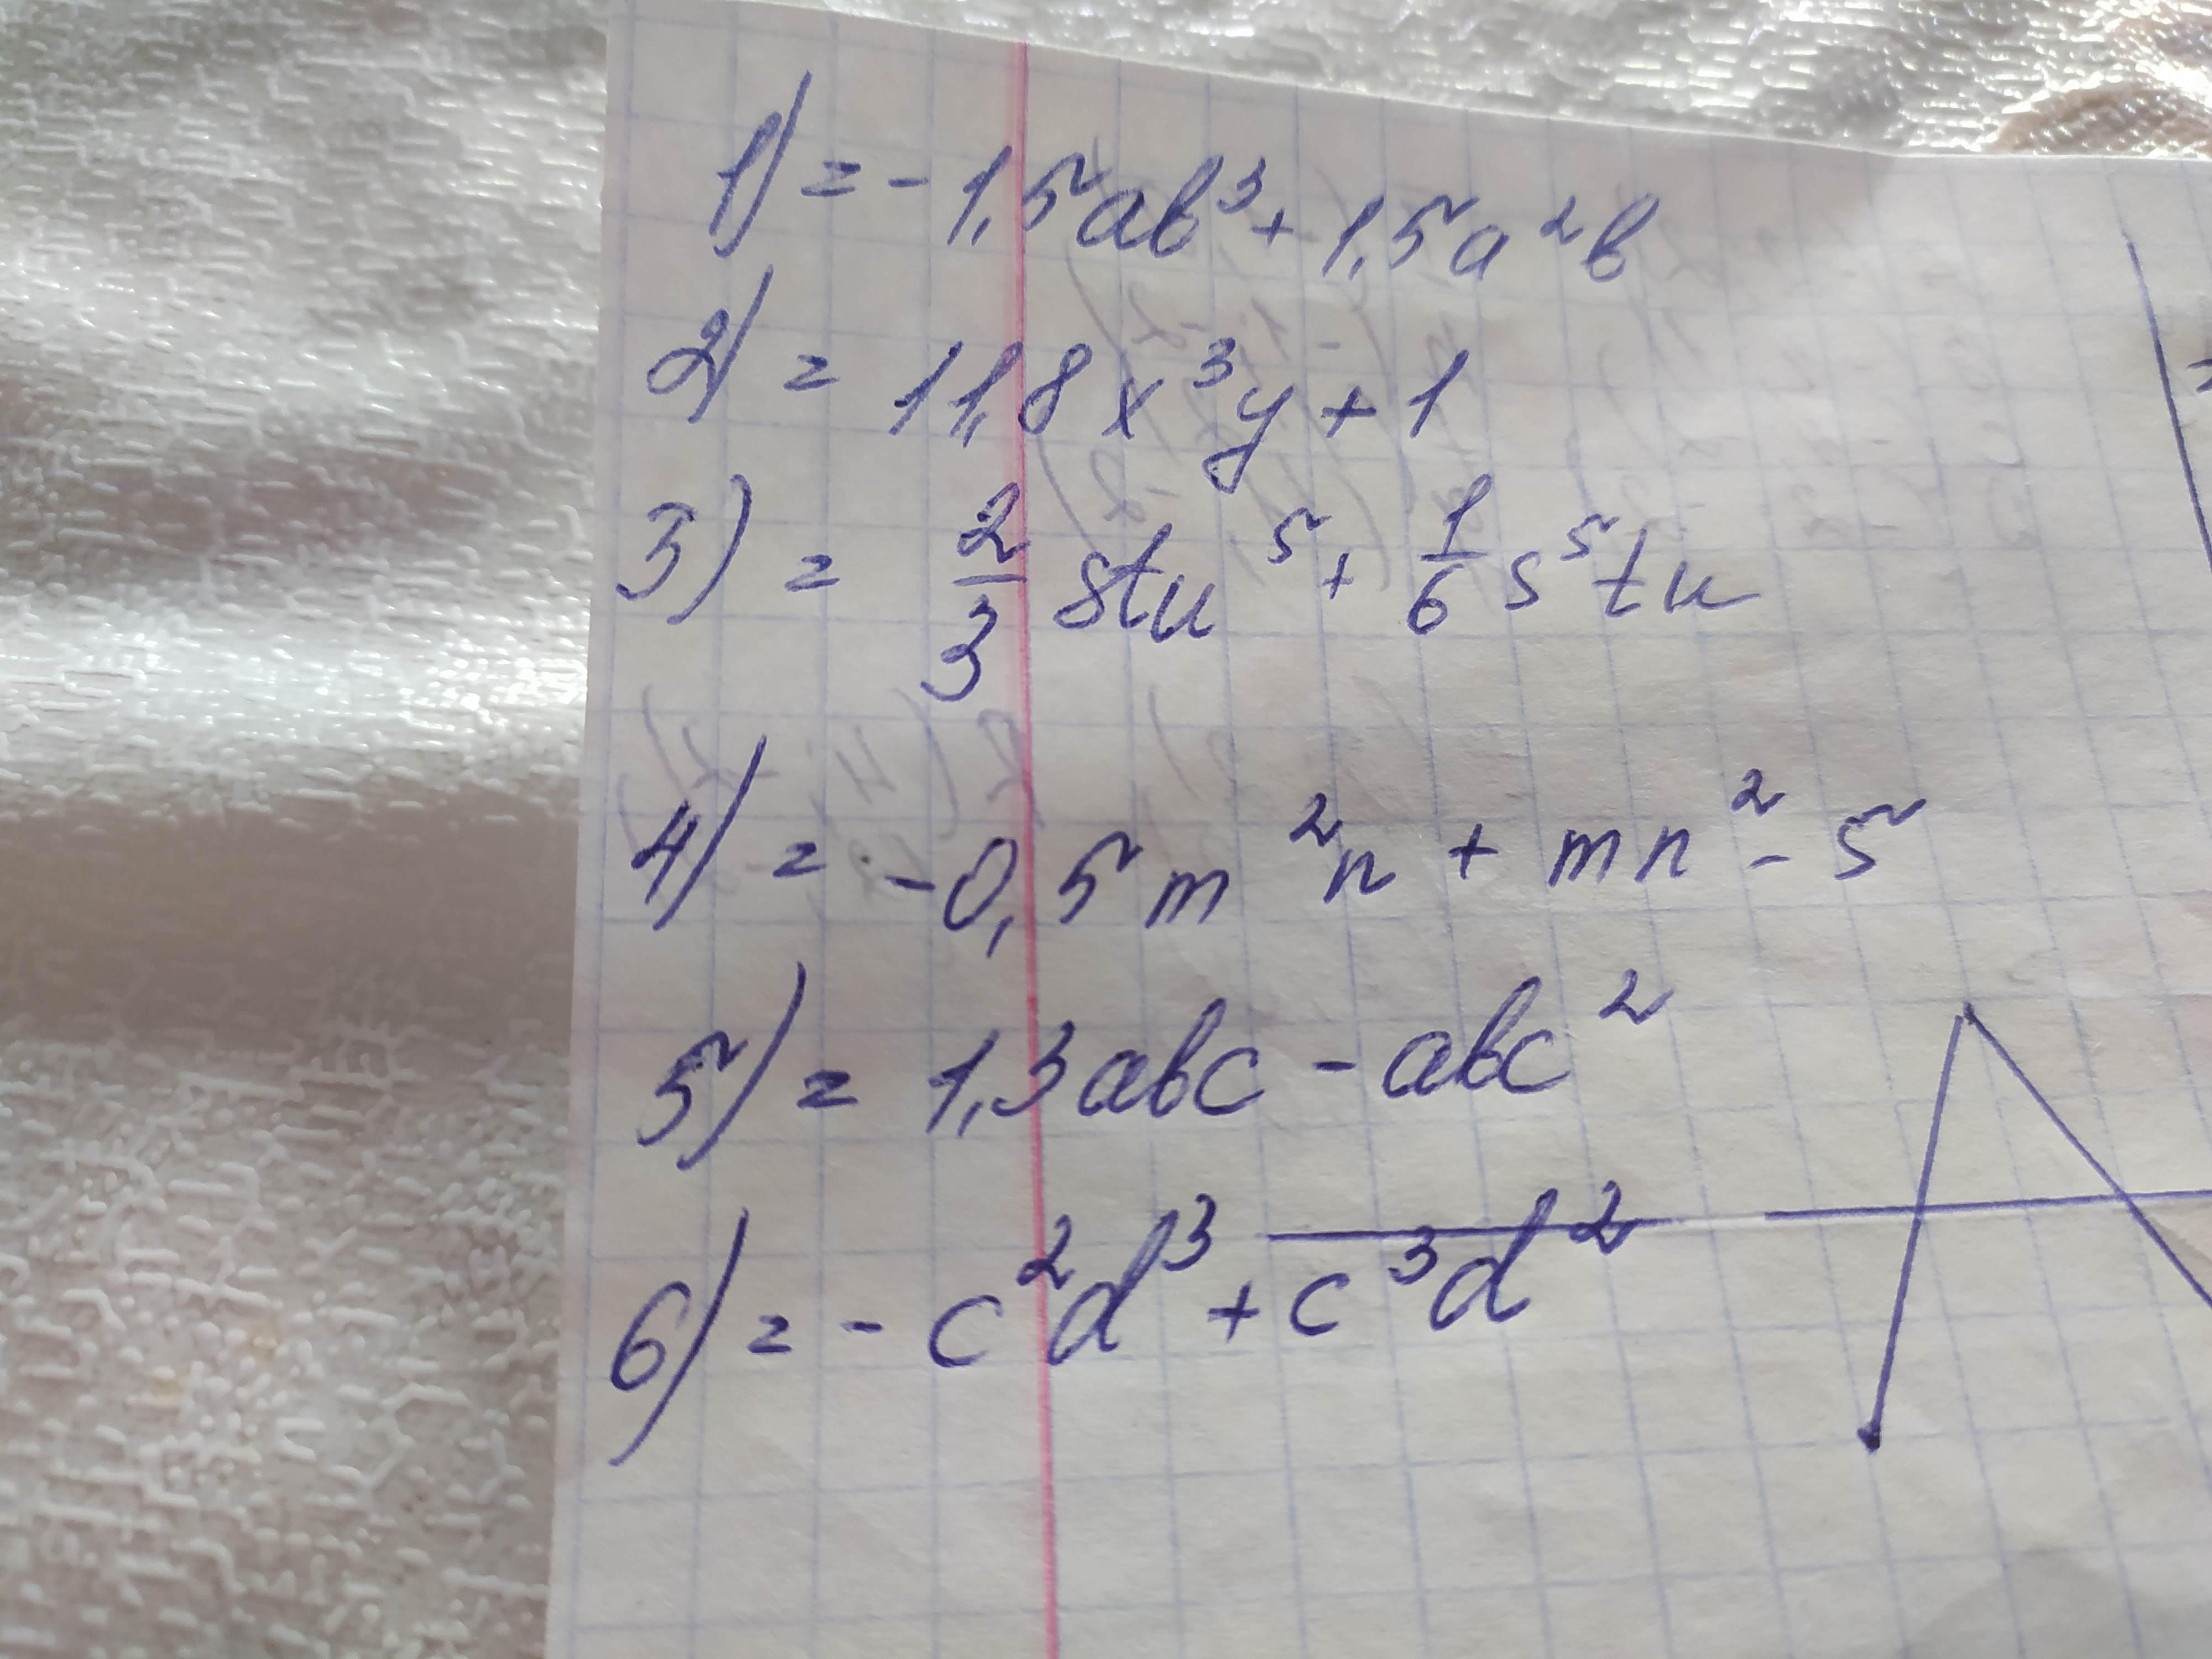 1) = -1,5ab³ + 1,5a²b
2) = 11,8x³y + 1
3) = 2/3 stu⁵ + 1/6 s⁵tu
4) = -0,5m²n + mn² - 5
5) = 1,3abc - abc²
6) = -c²d³ + c³d²